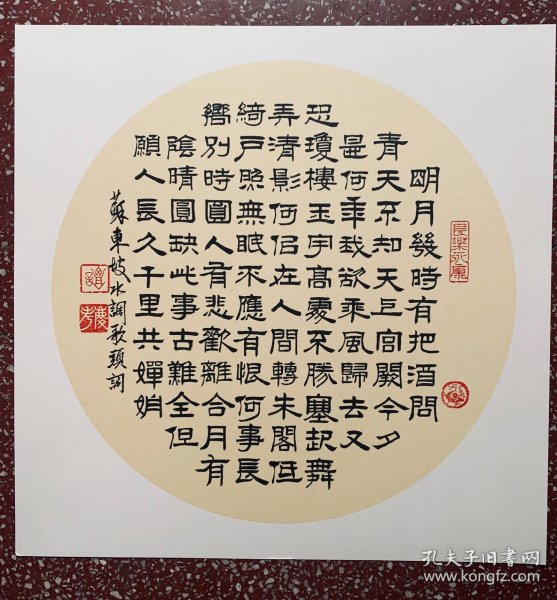 明月幾時有把酒問
青天不知天上宫闕今夕
是何年我欲乘風歸去又
恐瓊樓玉宇高處不勝寒起舞
弄清影何佀在人間轉朱閣低
綺户照無眠不應有恨何事長
嚮别時圓人有悲歡離合月有
陰晴圓缺此事古難全但
願人長久千里共嬋娟
蘇東坡水調歌頭詞
長樂永康
孔夫子旧书网
www.kongfz.com